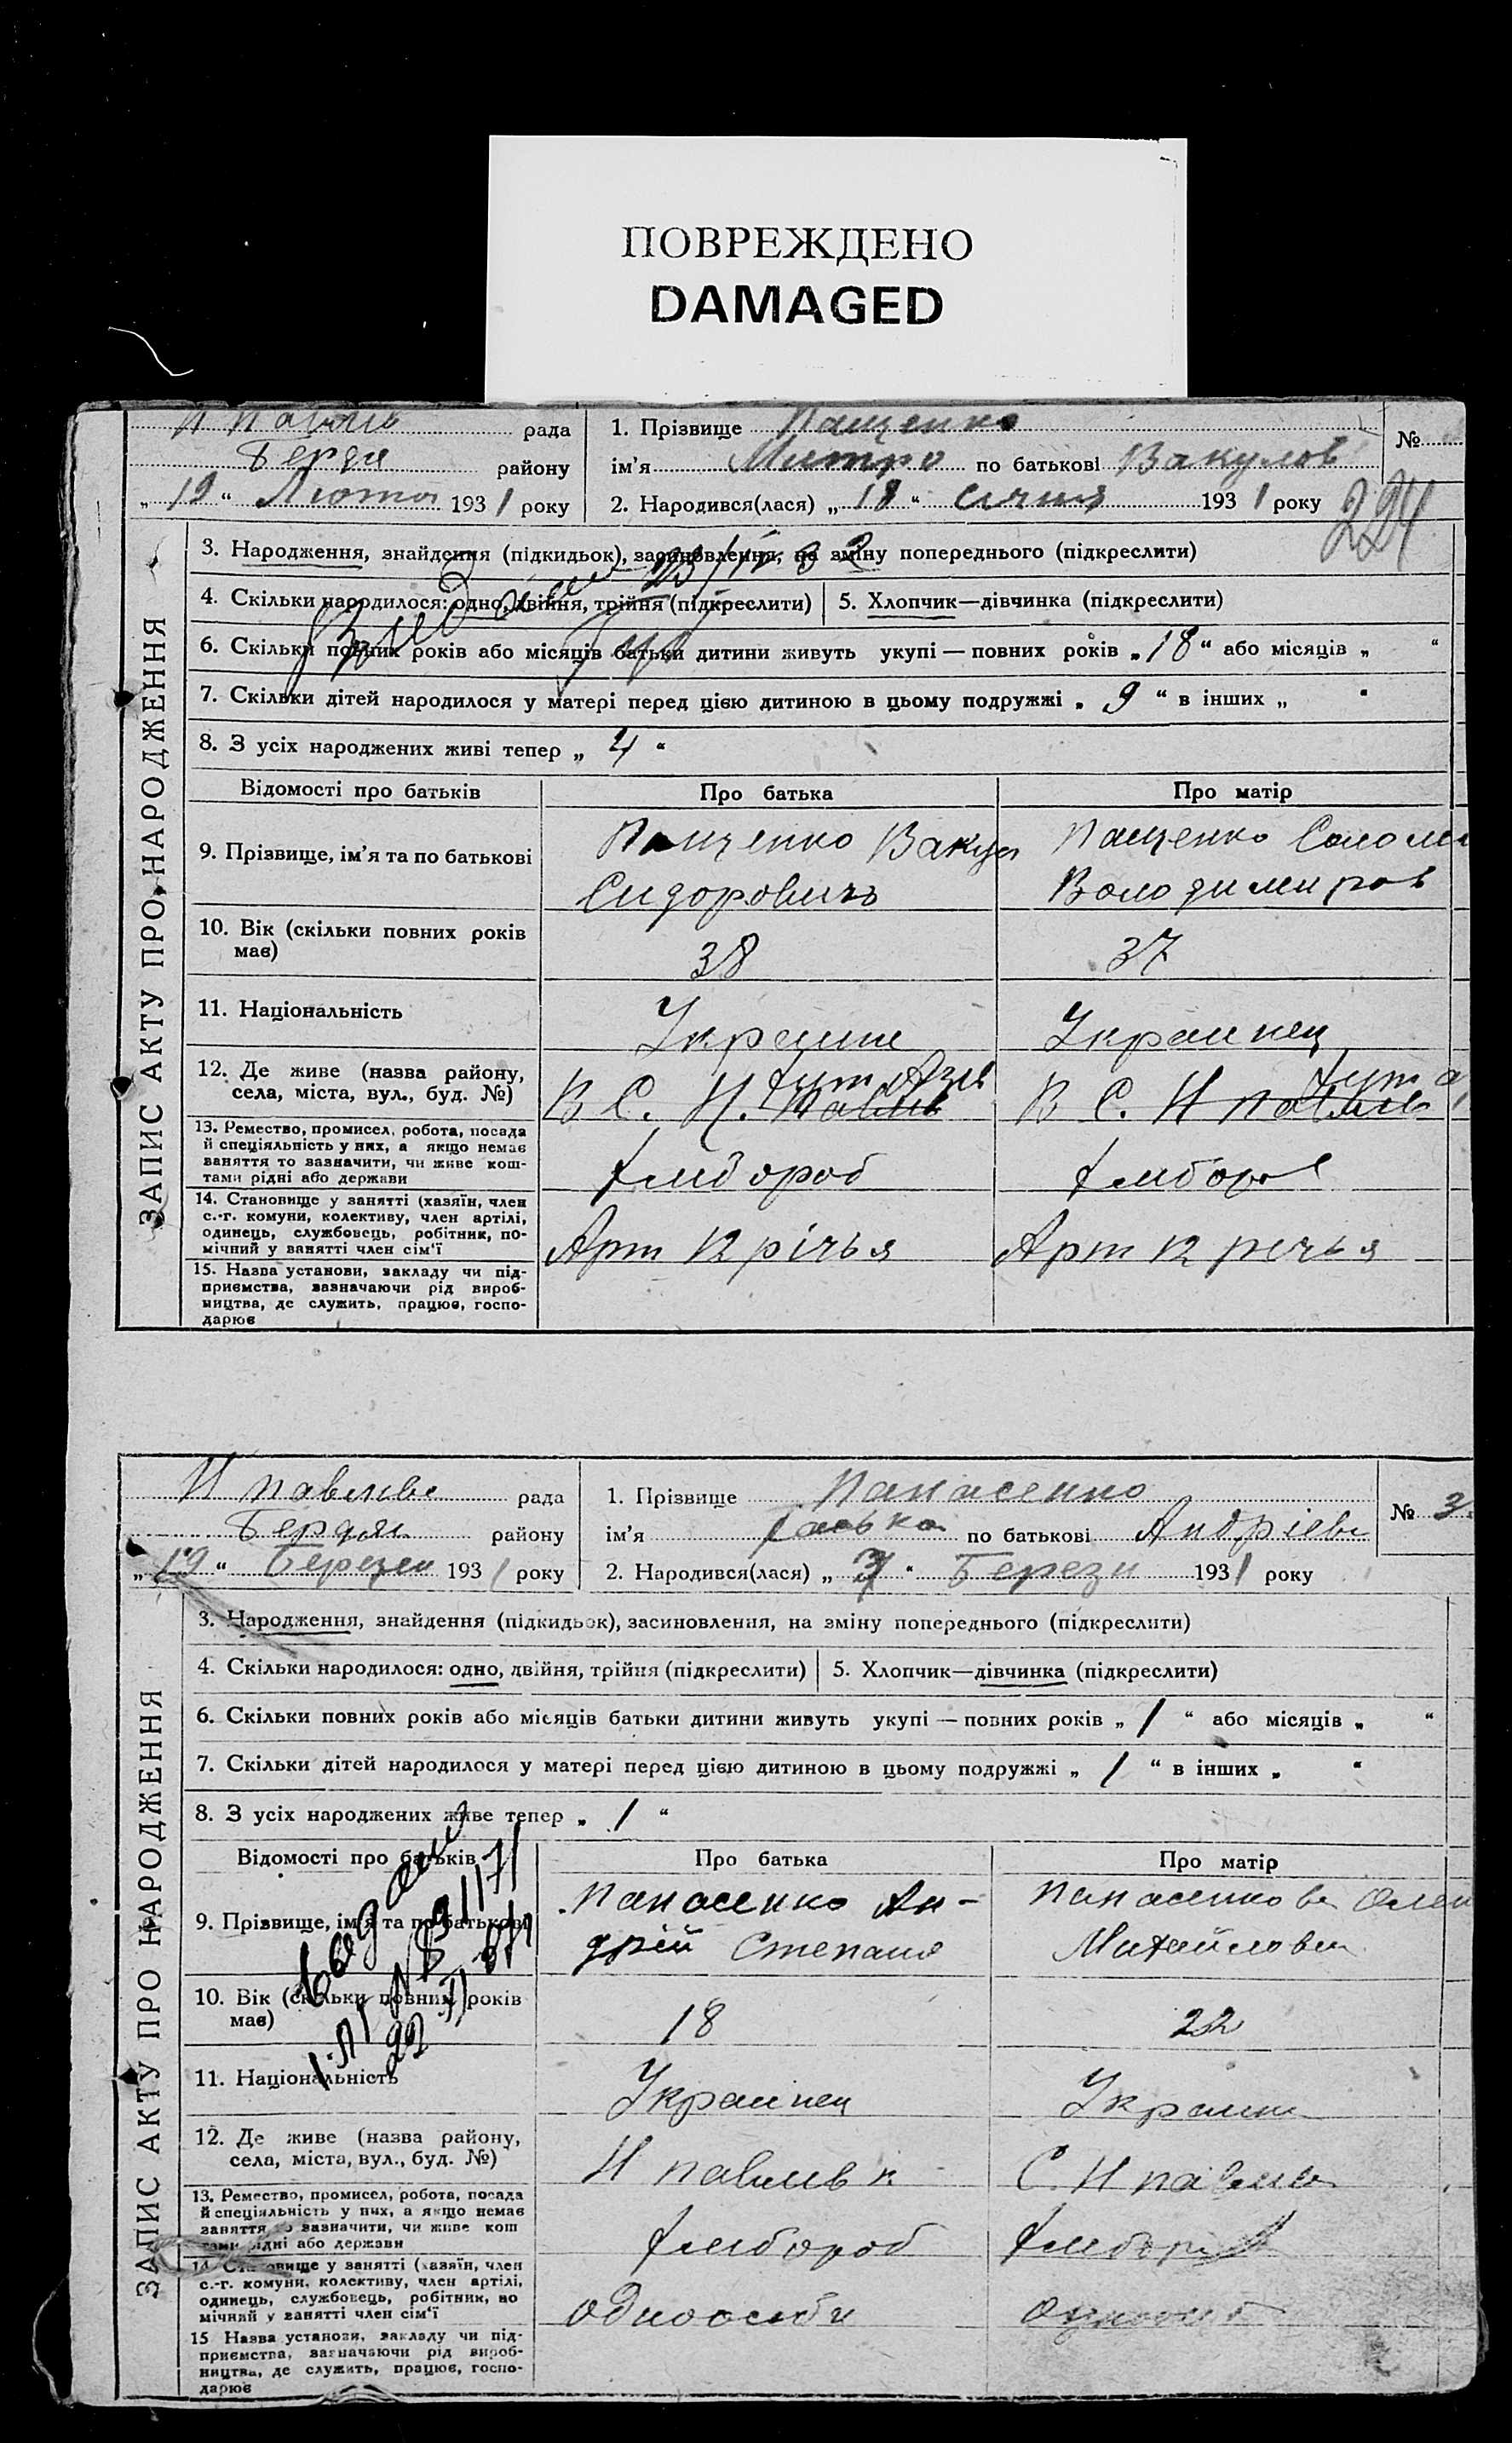 ПОВРЕЖДЕНО
DAMAGED
рада
району
„ 19 “ Лютого 1931 року
1. Прізвище Пащенко
ім’я Митро по батькові Вакулов
2. Народився(лася) „ 18 “ січня 1931 року
№
294
ЗАПИС АКТУ ПРО НАРОДЖЕННЯ
3. Народження, знайдення (підкидьок), засиновлення, на зміну попереднього (підкреслити)
4. Скільки народилося: одно, двійня, трійня (підкреслити)
5. Хлопчик—дівчинка (підкреслити)
6. Скільки повних років або місяців батьки дитини живуть укупі — повних років „ 18 “ або місяців „ “
7. Скільки дітей народилося у матері перед цією дитиною в цьому подружжі „ 9 “ в інших „ “
8. З усіх народжених живі тепер „ 4 “
Відомості про батьків
Про батька
Про матір
9. Прізвище, ім’я та по батькові
Пащенко Вакул
Сидорович
Пащенко Солом
Володимиров
10. Вік (скільки повних років
має)
38
37
11. Національність
Украине
Украинец
12. Де живе (назва району,
села, міста, вул., буд. №)
В С. Н.
В С. Н
13. Ремество, промисел, робота, посада
й спеціяльність у них, а якщо немає
заняття то зазначити, чи живе кош-
тами рідні або держави
хлибороб
хлибороб
14. Становище у занятті (хазяїн, член
с.-г. комуни, колективу, член артілі,
одинець, службовець, робітник, по-
мічний у занятті член сім’ї
Арт 12 річья
Арт 12 речья
15. Назва установи, закладу чи під-
приємства, зазначаючи рід вироб-
ництва, де служить, працює, госпо-
дарює
Н павливс рада
Бердян району
„ 19 “ Березня 1931 року
1. Прізвище Панасенко
ім’я по батькові Андріев
2. Народився(лася) „ “ Березн 1931 року
№ 3
ЗАПИС АКТУ ПРО НАРОДЖЕННЯ
3. Народження, знайдення (підкидьок), засиновлення, на зміну попереднього (підкреслити)
4. Скільки народилося: одно, двійня, трійня (підкреслити)
5. Хлопчик—дівчинка (підкреслити)
6. Скільки повних років або місяців батьки дитини живуть укупі — повних років „ 1 “ або місяців „ “
7. Скільки дітей народилося у матері перед цією дитиною в цьому подружжі „ 1 “ в інших „ “
8. З усіх народжених живе тепер „ 1 “
Відомості про батьків
Про батька
Про матір
9. Прізвище, ім’я та по батькові
Панасенко Ан-
дрій Степано
Панасенкова Олен
Михайловн
10. Вік (скільки повних років
має)
18
22
11. Національність
Украинец
Украин
12. Де живе (назва району,
села, міста, вул., буд. №)
Н павливк
С. Н павлив
13. Ремество, промисел, робота, посада
й спеціяльність у них, а якщо немає
заняття то зазначити, чи живе кош
тами рідні або держави
хлибороб
хлибороб
14. Становище у занятті (хазяїн, член
с.-г. комуни, колективу, член артілі,
одинець, службовець, робітник, по
мічний у занятті член сім’ї
одноосібн
15 Назва установи, закладу чи під-
приємства, зазначаючи рід вироб-
ництва, де служить, працює, госпо-
дарює